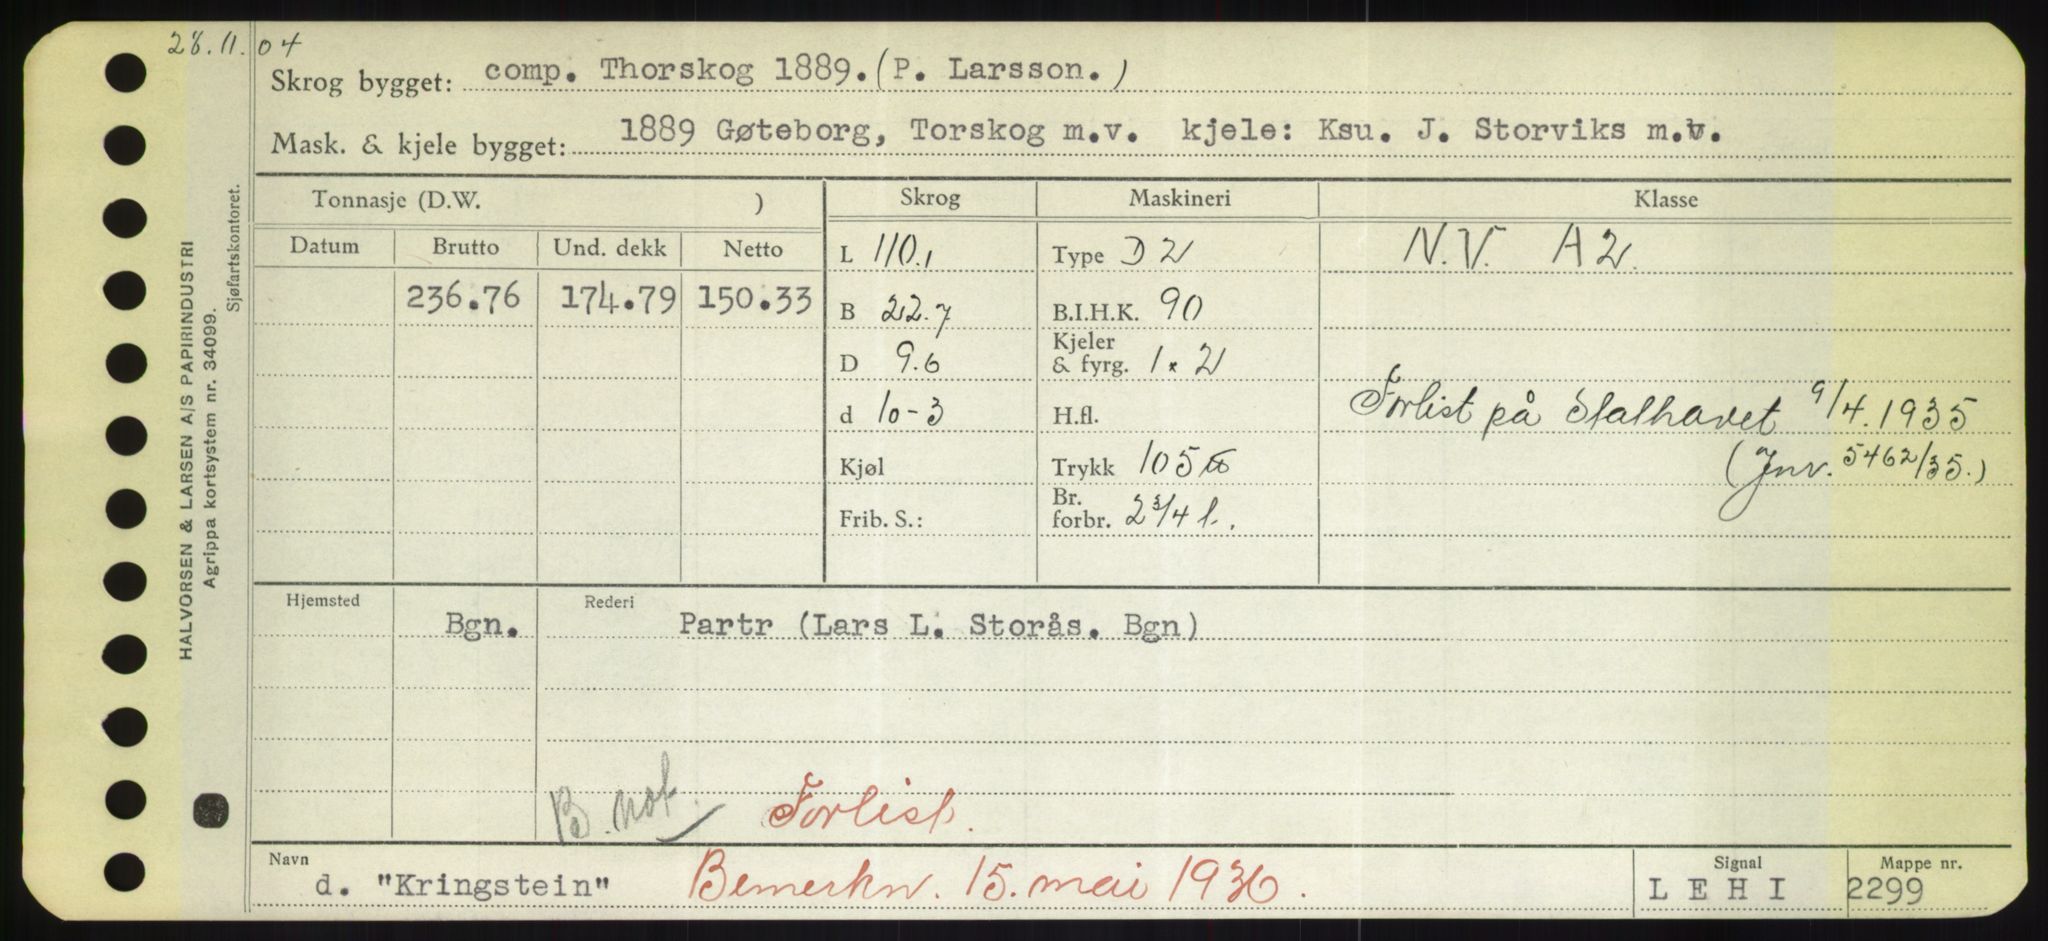 28.11.04
Skrog bygget: comp. Thorskog 1889. (P. Larsson.)
Mask. & kjele bygget: 1889 Gøteborg, Torskog m.v. kjele: Ksu. J. Storviks m.v.
Tonnasje (D.W. ) Skrog Maskineri Klasse
Datum Brutto Und. dekk Netto
L 110.1 Type D 2 N.V. A2.
236.76 174.79 150.33
B 22.7 B.I.H.K. 90
Kjeler
D 9.6 & fyrg. 1 x 2
d 10-3 H.fl. Forlist på Stalhavet 9/4.1935
Kjøl Trykk 105 (Jnv. 5462/35.)
Br.
Frib. S.: forbr. 2 3/4 l.
Hjemsted Rederi
Bgn. Partr (Lars L. Storås. Bgn)
B. not. Forlist.
Navn Signal Mappe nr.
d. "Kringstein" Bemerkn. 15. mai 1936. LEHI 2299
HALVORSEN & LARSEN A/S PAPIRINDUSTRI
Agrippa kortsystem nr. 34099.
Sjøfartskontoret.